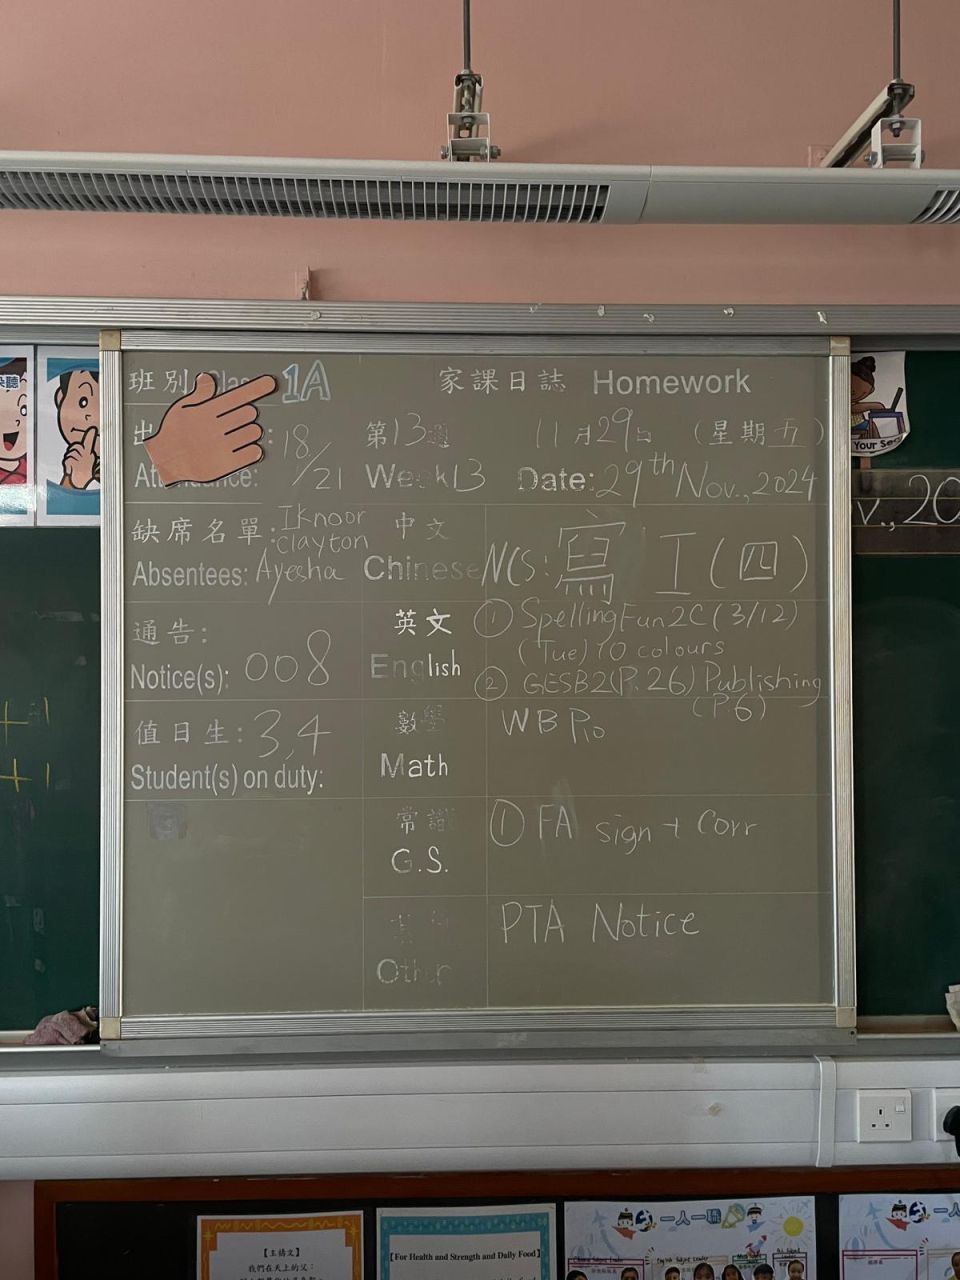 班別 Class 1A
家課日誌 Homework
18/21
第13週
11月29日 (星期五)
Attendance:
Week 13
Date: 29th Nov., 2024
缺席名單: Iknoor
clayton
Absentees: Ayesha
中文
Chinese
NCS: 寫工(四)
通告:
Notice(s): 008
英文
English
① Spelling Fun 2C (3/12)
(Tue) 10 colours
② GESB2 (P.26) Publishing
(P6)
值日生: 3,4
Student(s) on duty:
數學
Math
WB
常識
G.S.
① FA sign + Corr
其他
Other
PTA Notice
Your Sea
v., 20
【主禱文】
我們在天上的父：
【For Health and Strength and Daily Food】
一人一職